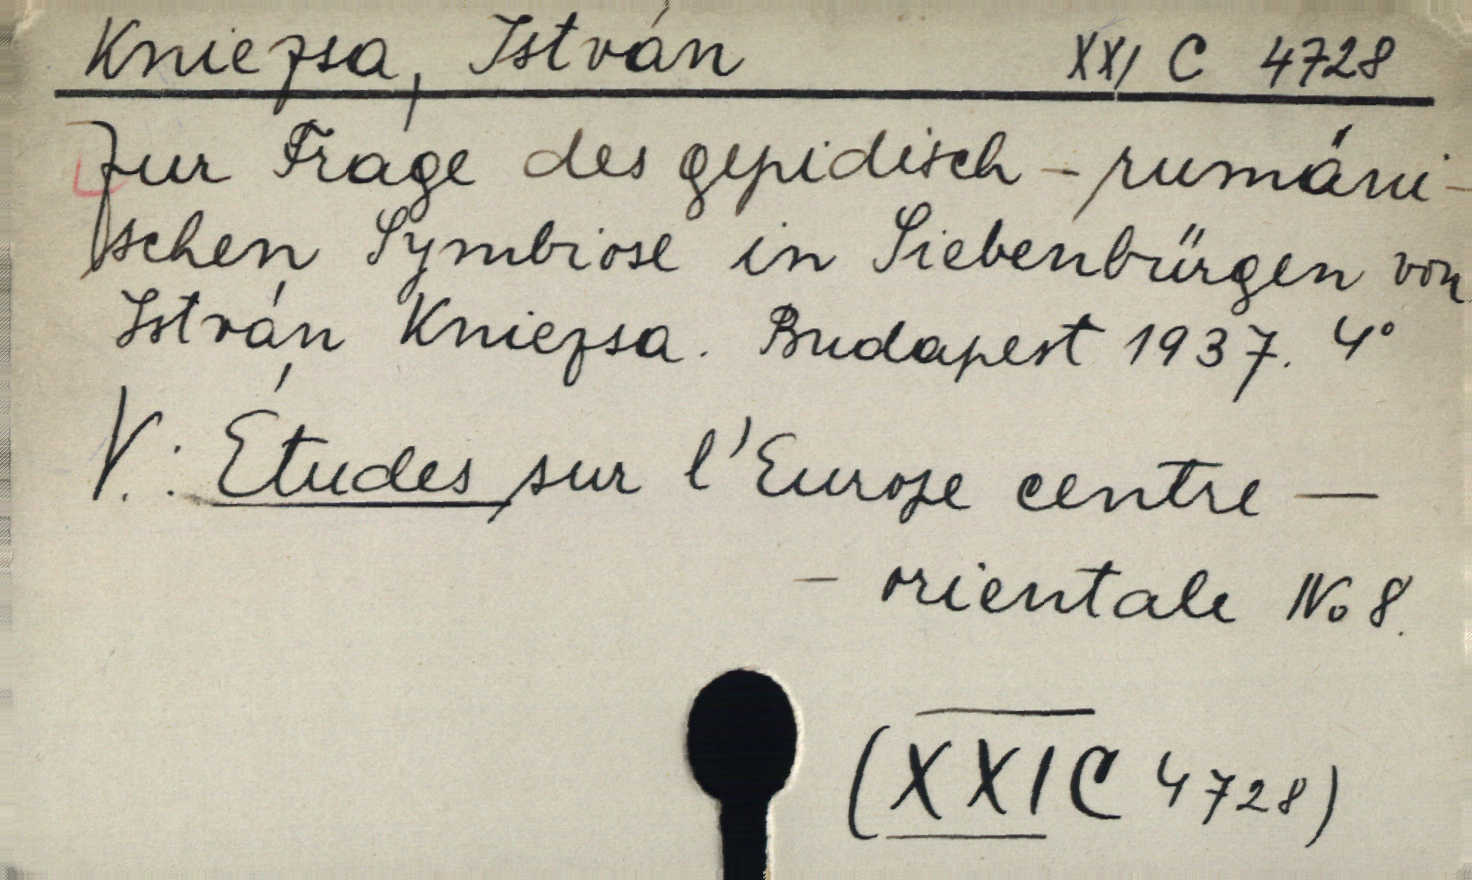 Kniezsa, István XXI C 4728
Zur Frage des gepidisch-rumäni-
schen Symbiose in Siebenbürgen von
István Kniezsa. Budapest 1937. 4°
V.: Études sur l'Europe centre —
- orientale No 8.
(XXI C 4728)